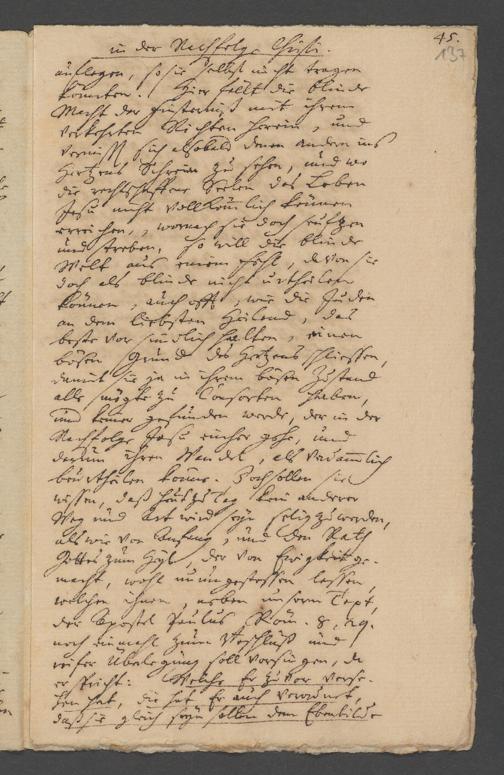 in der Nachfolge Christi.
45.
137
auflegen, so sie selbst nicht tragen
könnten. Hier fällt die blinde
Macht der Finsternis mit ihrem
verkehrten Richten herein, und
sich alsobald denen andern ins
Hertzens Schrein zu sehen, und wo
die rechtschaffene Seelen das Leben
Jesu nicht vollkömlich können
erreichen, wornach sie doch seufzen
und streben, so will die blinde
Welt aus einem Fehl, davon sie
doch als blinde nicht urtheilen
können, auch offt, wie die Juden
an dem liebsten Heiland, das
beste vor sündlich halten, einen
bösen Grund des Hertzens schliessen,
damit sie ja in ihrem bösen Zustand
alle mögte zu Consorten haben,
und keiner gefunden werde, der in der
Nachfolge Jesu einher gehe, und
darum ihren Wandel, als verdammlich
beurtheilen könne. Doch sollen sie
wissen, daß heut zu Tag kein anderer
Weg und Art wird seyn selig zu werden,
als wie von Anfang, und den Rath
Gottes zum Heyl, der von Ewigkeit ge-
macht, wohl lassen,
welchen ihnen, neben unserm Text,
der Apostel Paulus Röm. 8, 29.
noch einmahl zum Beschluß und
reifer Überlegung soll vorsingen, da
er spricht: Welche Er zuvor verse-
hen hat, die hat Er auch verordnet,
daß sie gleich seyn sollen dem Ebenbilde